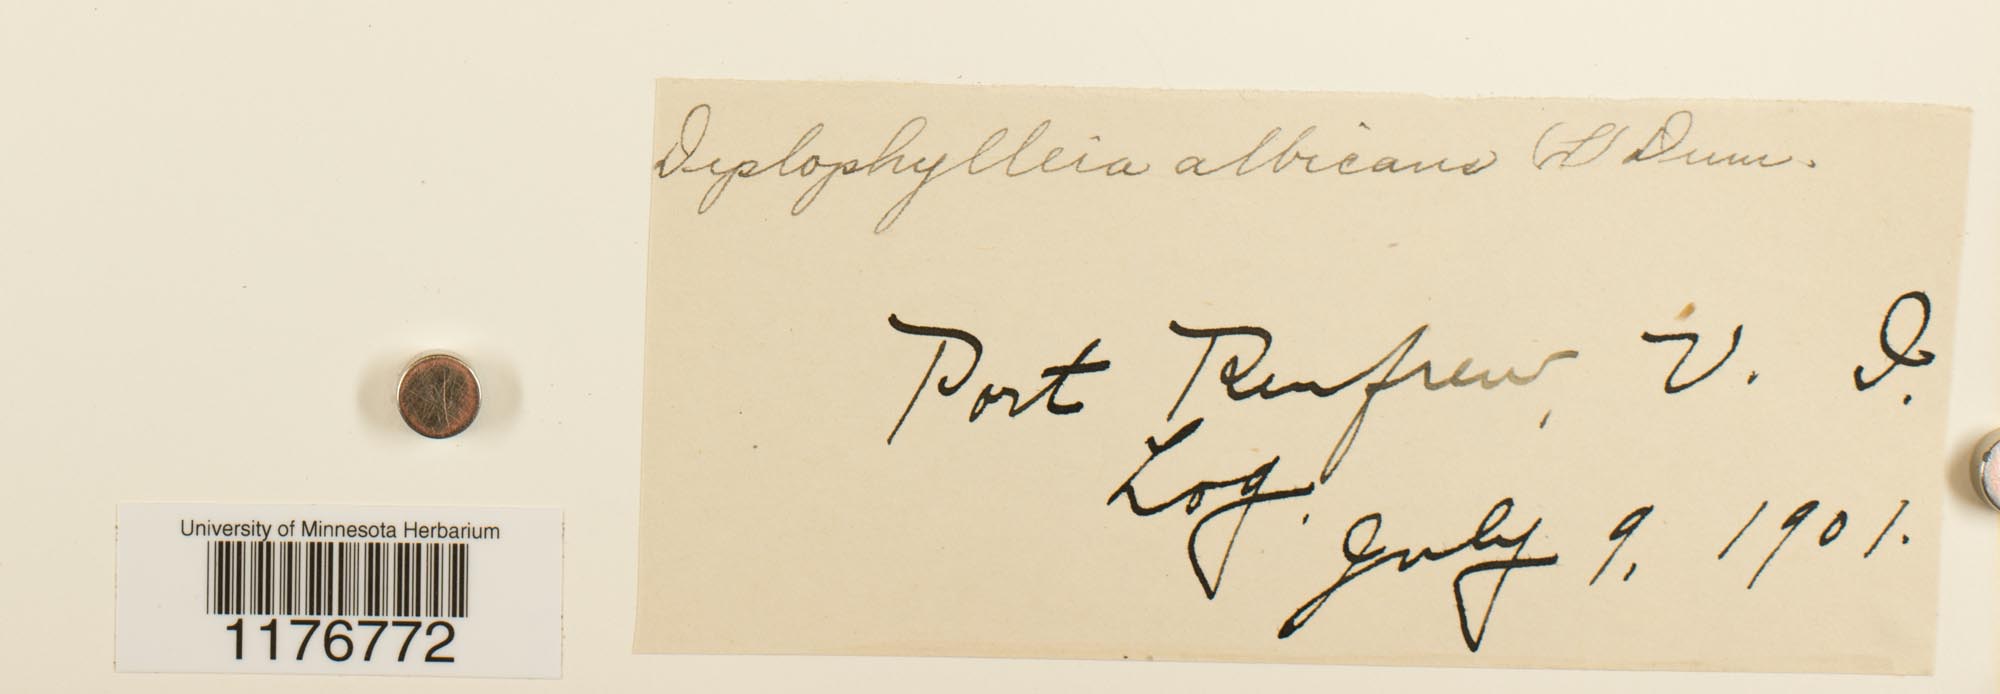 Diplophylleia albicans (L) Dum.
Port Renfrew, V. I.
Log.
July 9, 1901.
University of Minnesota Herbarium
1176772